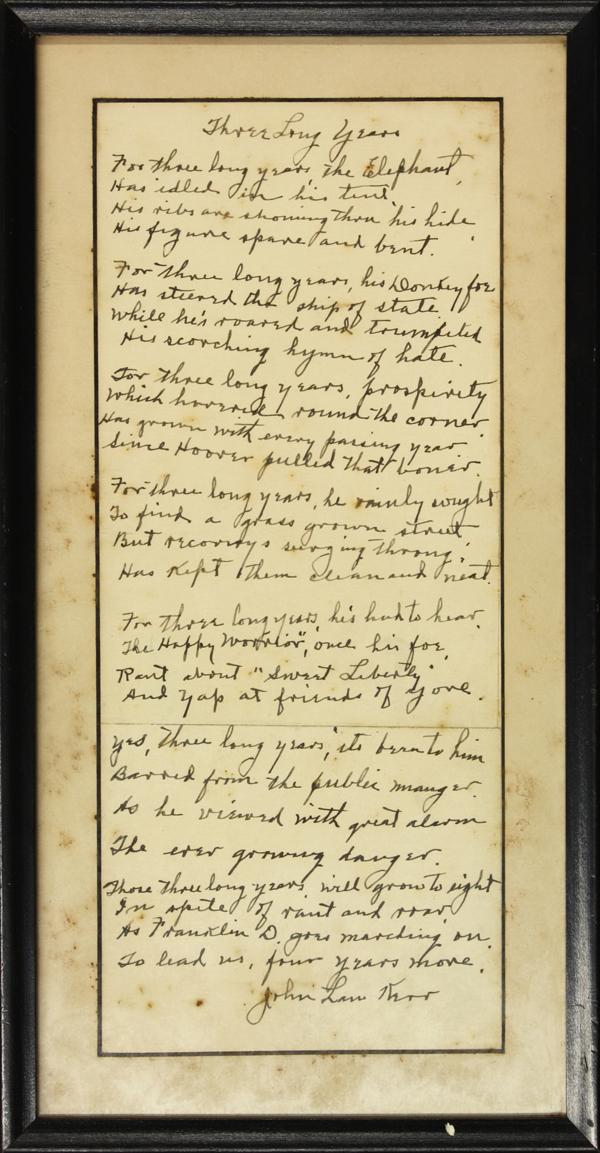 Three Long Years
For three long years, the Elephant,
Has idled in his tent,
His ribs are showing thru his hide
His figure spare and bent.
For three long years, his Donkey foe
Has steered the ship of state
While he's roared and trumpited
His scorching hymn of hate.
For three long years, prosperity
Which hovered round the corner.
Has grown with every passing year
Since Hoover pulled that boner.
For three long years, he vainly sought
To find a grass grown street
But recoverys surging throng,
Has Kept them clean and neat.
For three long years, his had to hear,
The Happy Worrior", once his foe,
Rant about "Sweet Liberty",
And yap at friends of yore.
Yes, three long years, its been to him
Barred from the public manger.
As he viewed with great alarm
The ever growing danger.
Those three long years will grow to eight
In spite of rant and roar
As Franklin D. goes marching on,
To lead us, four years more.
John Law Kerr